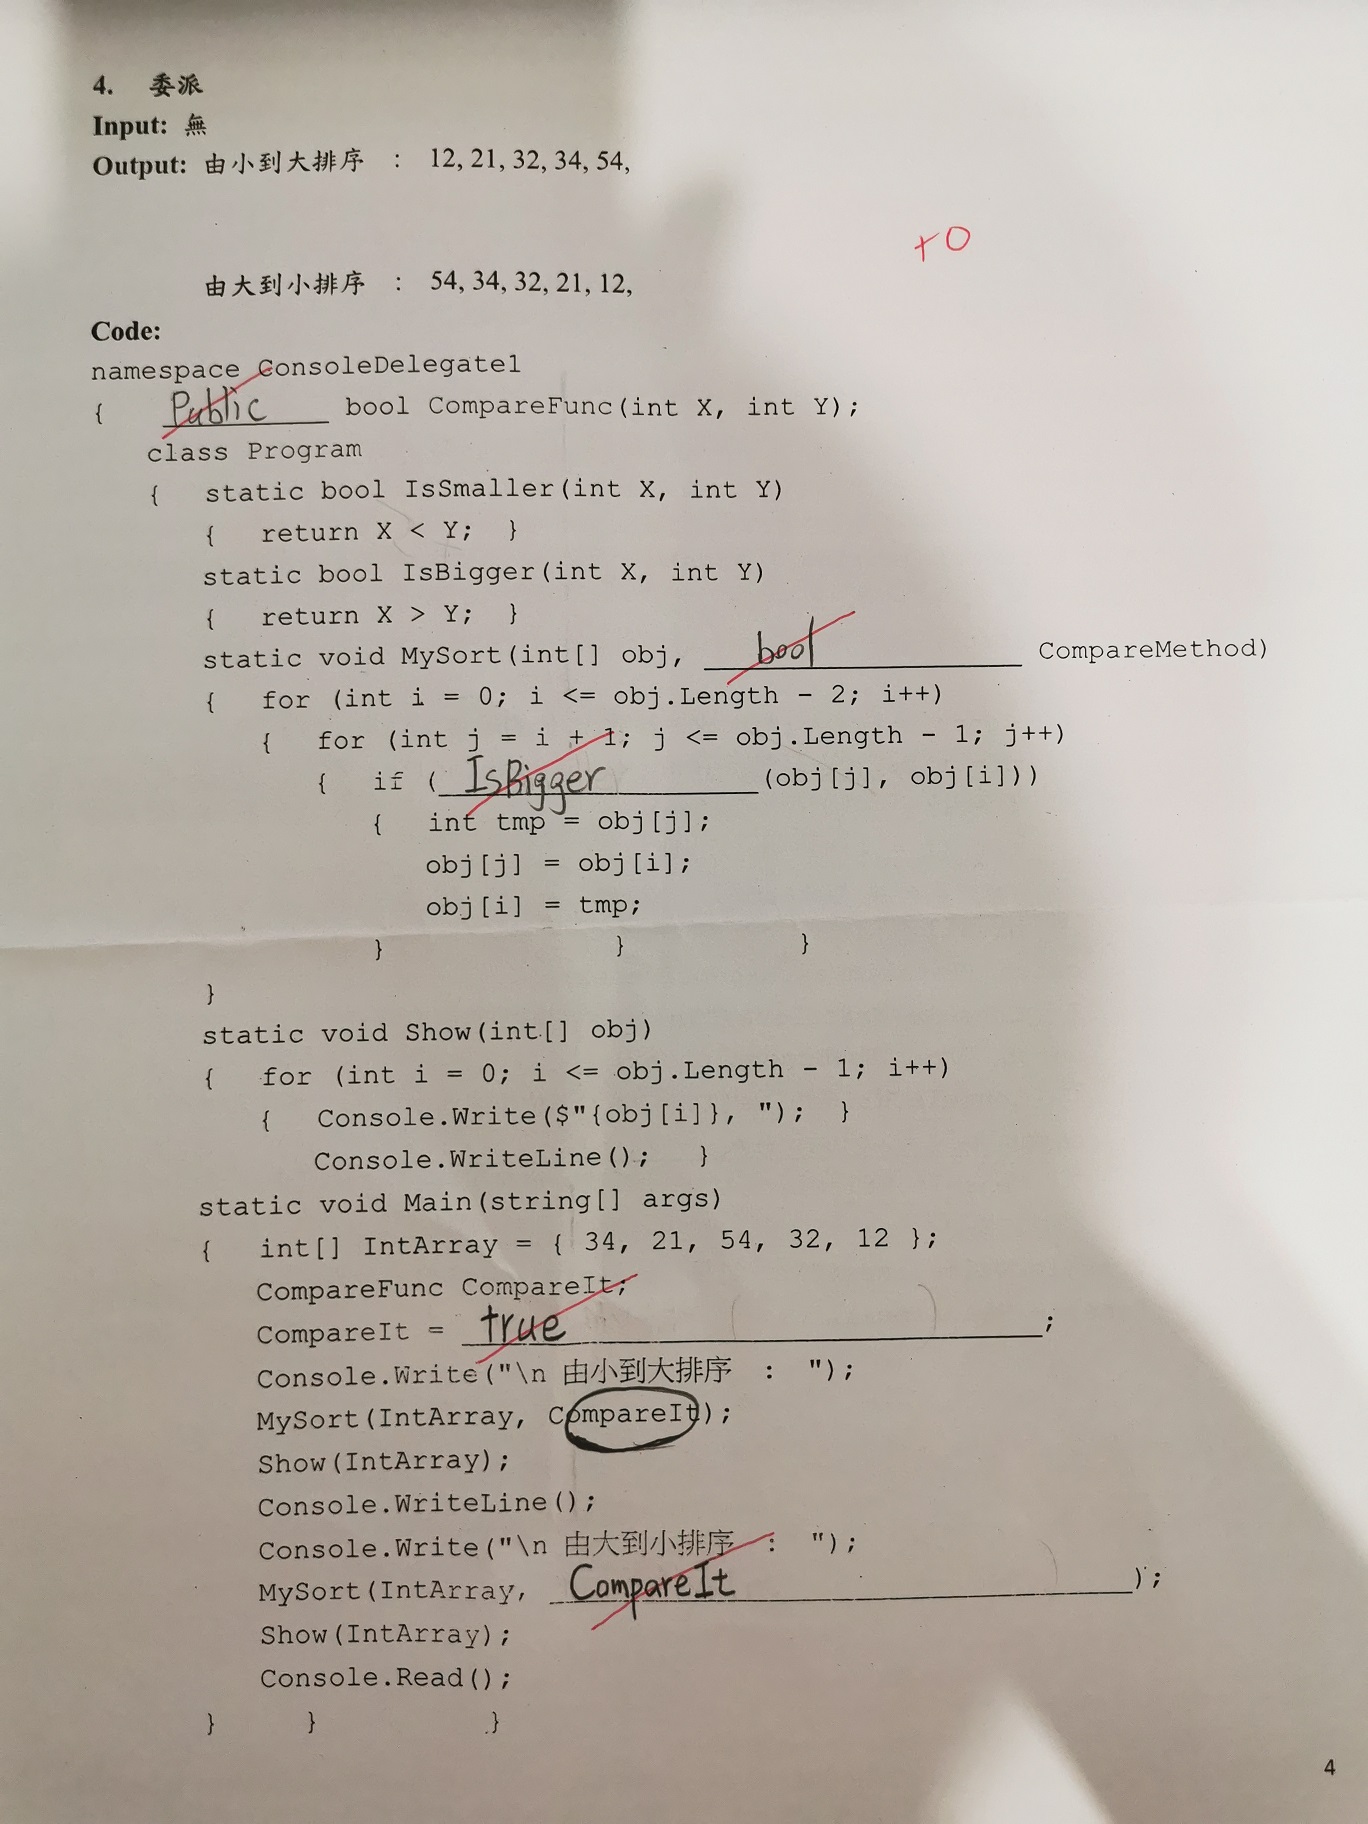 4. 委派
Input: 無
Output: 由小到大排序 : 12, 21, 32, 34, 54,
+0
由大到小排序 : 54, 34, 32, 21, 12,
Code:
namespace ConsoleDelegate1
{ Public bool CompareFunc(int X, int Y);
class Program
{ static bool IsSmaller(int X, int Y)
{ return X < Y; }
static bool IsBigger(int X, int Y)
{ return X > Y; }
static void MySort(int[] obj, bool CompareMethod)
{ for (int i = 0; i <= obj.Length - 2; i++)
{ for (int j = i + 1; j <= obj.Length - 1; j++)
{ if (IsBigger(obj[j], obj[i]))
{ int tmp = obj[j];
obj[j] = obj[i];
obj[i] = tmp;
} } }
}
static void Show(int[] obj)
{ for (int i = 0; i <= obj.Length - 1; i++)
{ Console.Write($"{obj[i]}, "); }
Console.WriteLine(); }
static void Main(string[] args)
{ int[] IntArray = { 34, 21, 54, 32, 12 };
CompareFunc CompareIt;
CompareIt = true ;
Console.Write("\n 由小到大排序 : ");
MySort(IntArray, CompareIt);
Show(IntArray);
Console.WriteLine();
Console.Write("\n 由大到小排序 : ");
MySort(IntArray, CompareIt );
Show(IntArray);
Console.Read();
} } }
4